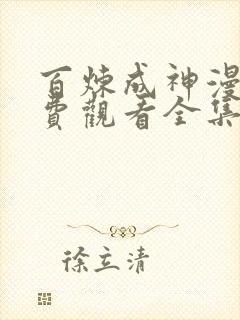 百炼成神漫
費觀看全集
徐立清